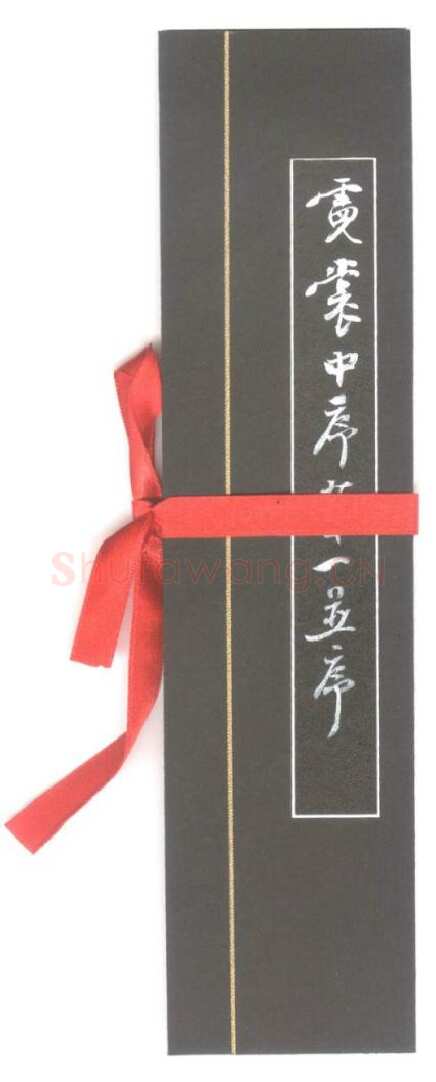 霓裳中序第一並序
Shufawang.CN